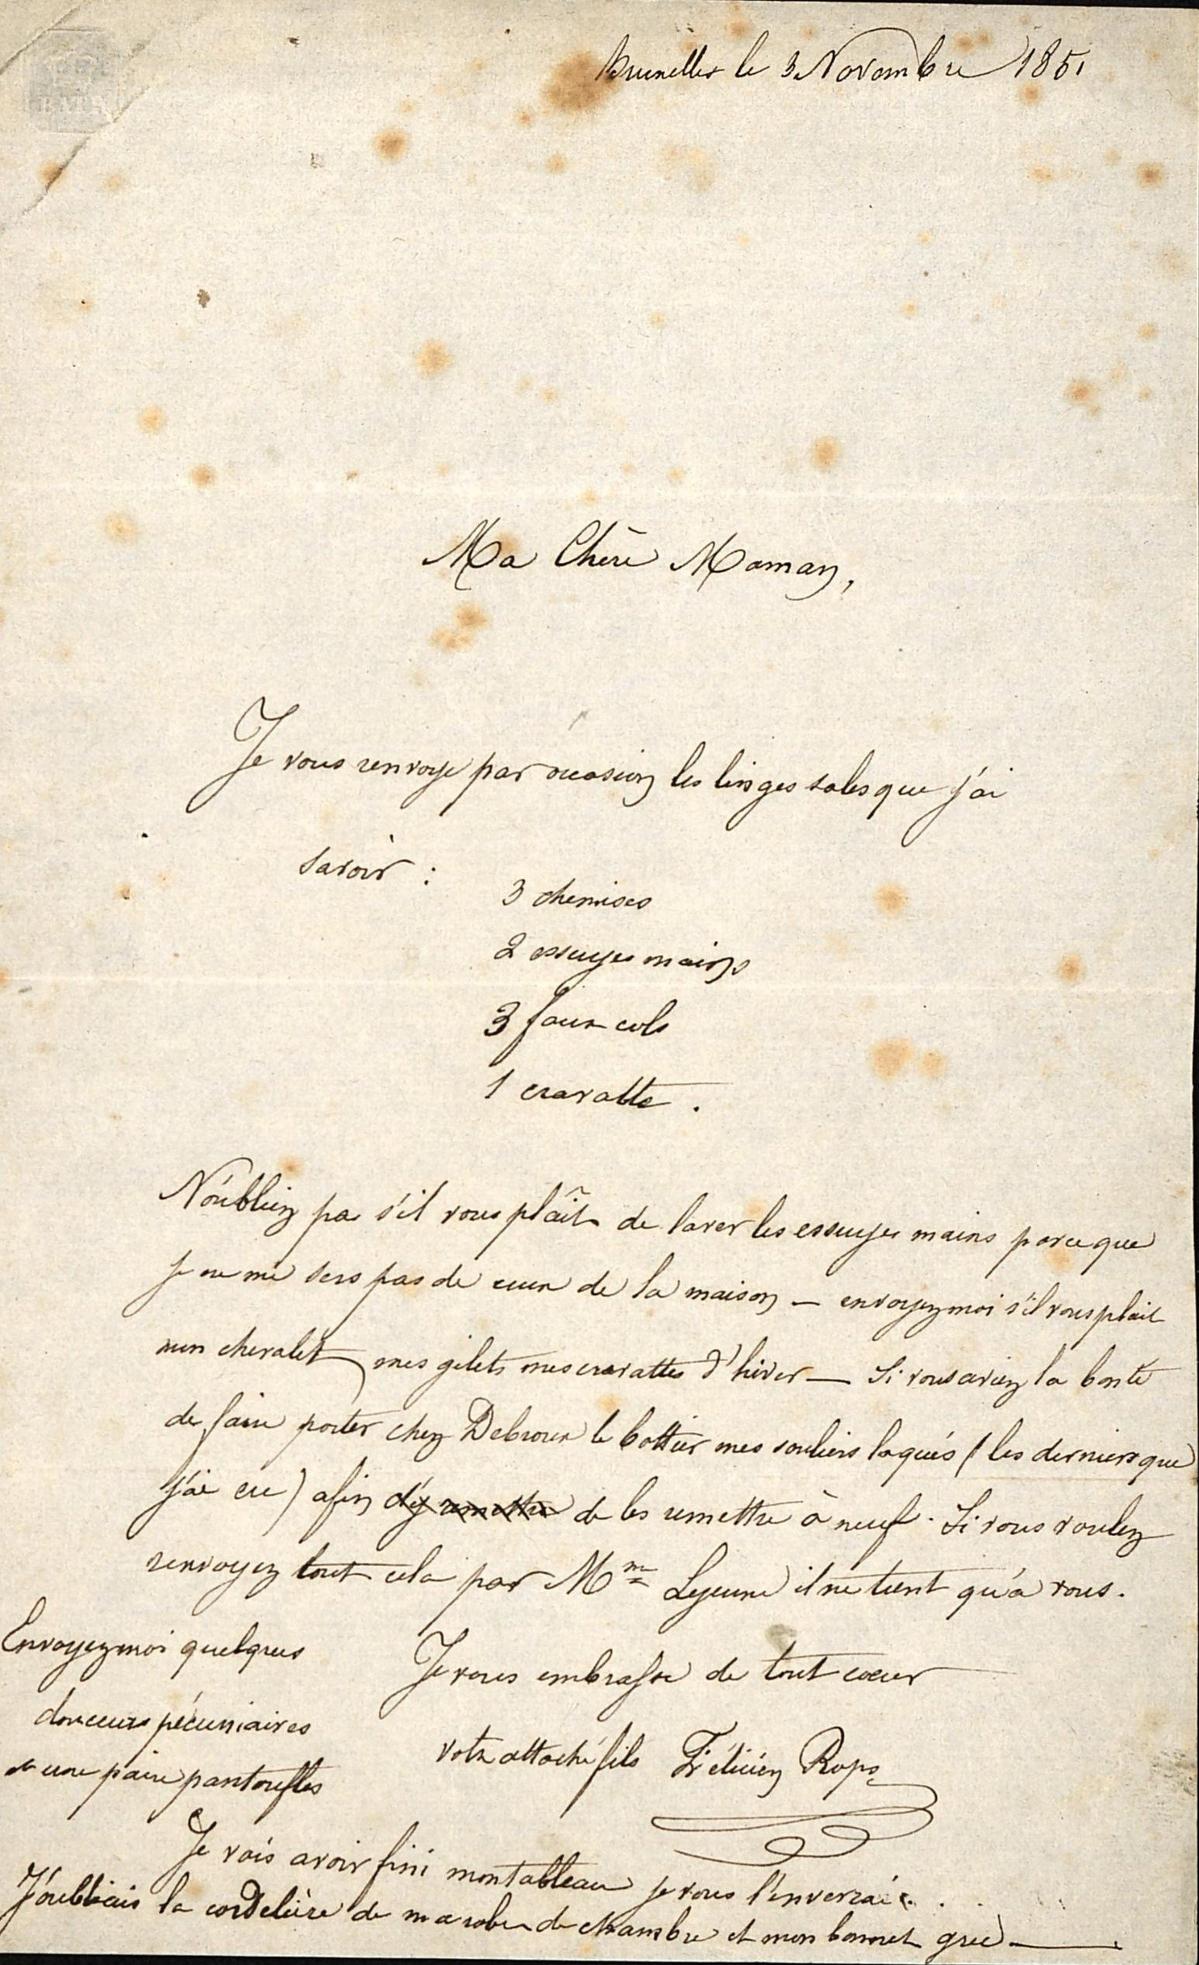 Bruxelles le 3 Novembre 1851
Ma Chère Maman,
Je vous renvoye par occasion les linges sales que j'ai
savoir :
3 chemises
2 essuyes mains
3 faux cols
1 cravatte .
N'oubliez pas s'il vous plâit de laver les essuyes mains parceque
je ne me sers pas de ceux de la maison — envoyez moi s'il vous plait
mon chevalet mes gilets mes cravattes d'hiver — Si vous aviez la bonté
de faire porter chez Debroux le bottier mes souliers laqués ( les derniers que
j'ai eu ) afin d'y remettre de les remettre à neuf . Si vous voulez
renvoyez tout cela par Mme Lejeune il ne tient qu'à vous .
Je vous embrasse de tout coeur
votre attaché fils Félicien Rops
Envoyez moi quelques
douceurs pécuniaires
et une paire pantoufles
Je vais avoir fini mon tableau je vous l'enverrai . .
J'oubliais la cordelière de ma robe de chambre et mon bonnet grec —